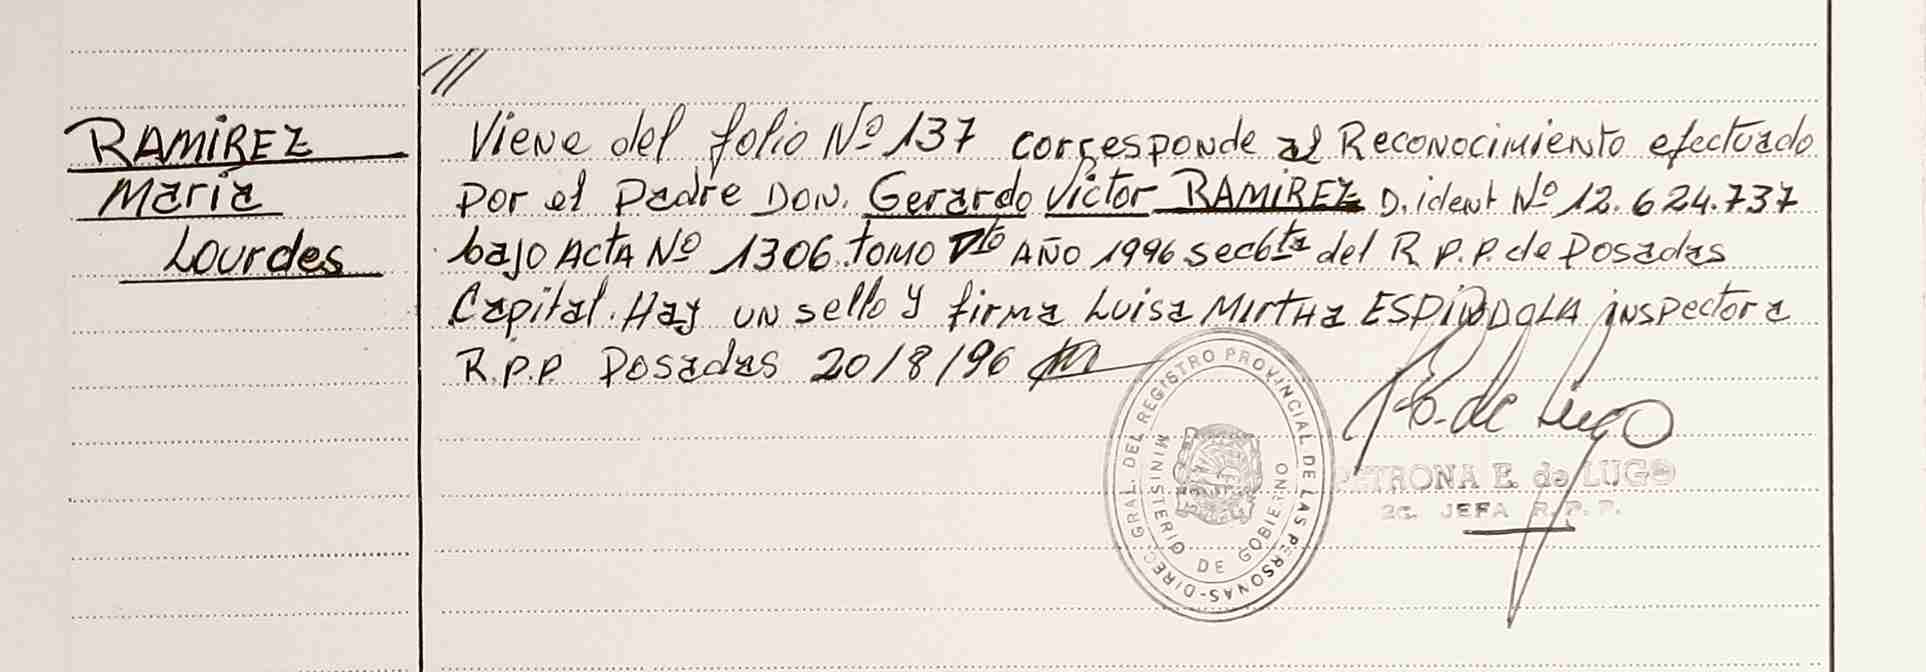 //
RAMIREZ
María
Lourdes
Viene del folio Nº 137 corresponde al Reconocimiento efectuado
por el Padre DON. Gerardo Víctor RAMIREZ D. ident Nº 12.624.737
bajo ActA Nº 1306 tomo Vto AÑO 1996 sec 6ta del R.P.P. de Posadas
Capital. Hay un sello y firma Luisa Mirtha ESPINDOLA inspectora
R.P.P. Posadas 20/8/96
DIREC. GRAL. DEL REGISTRO PROVINCIAL DE LAS PERSONAS-
MINISTERIO DE GOBIERNO
P. de Lugo
PETRONA E. de LUGO
2a. JEFA R.P.P.